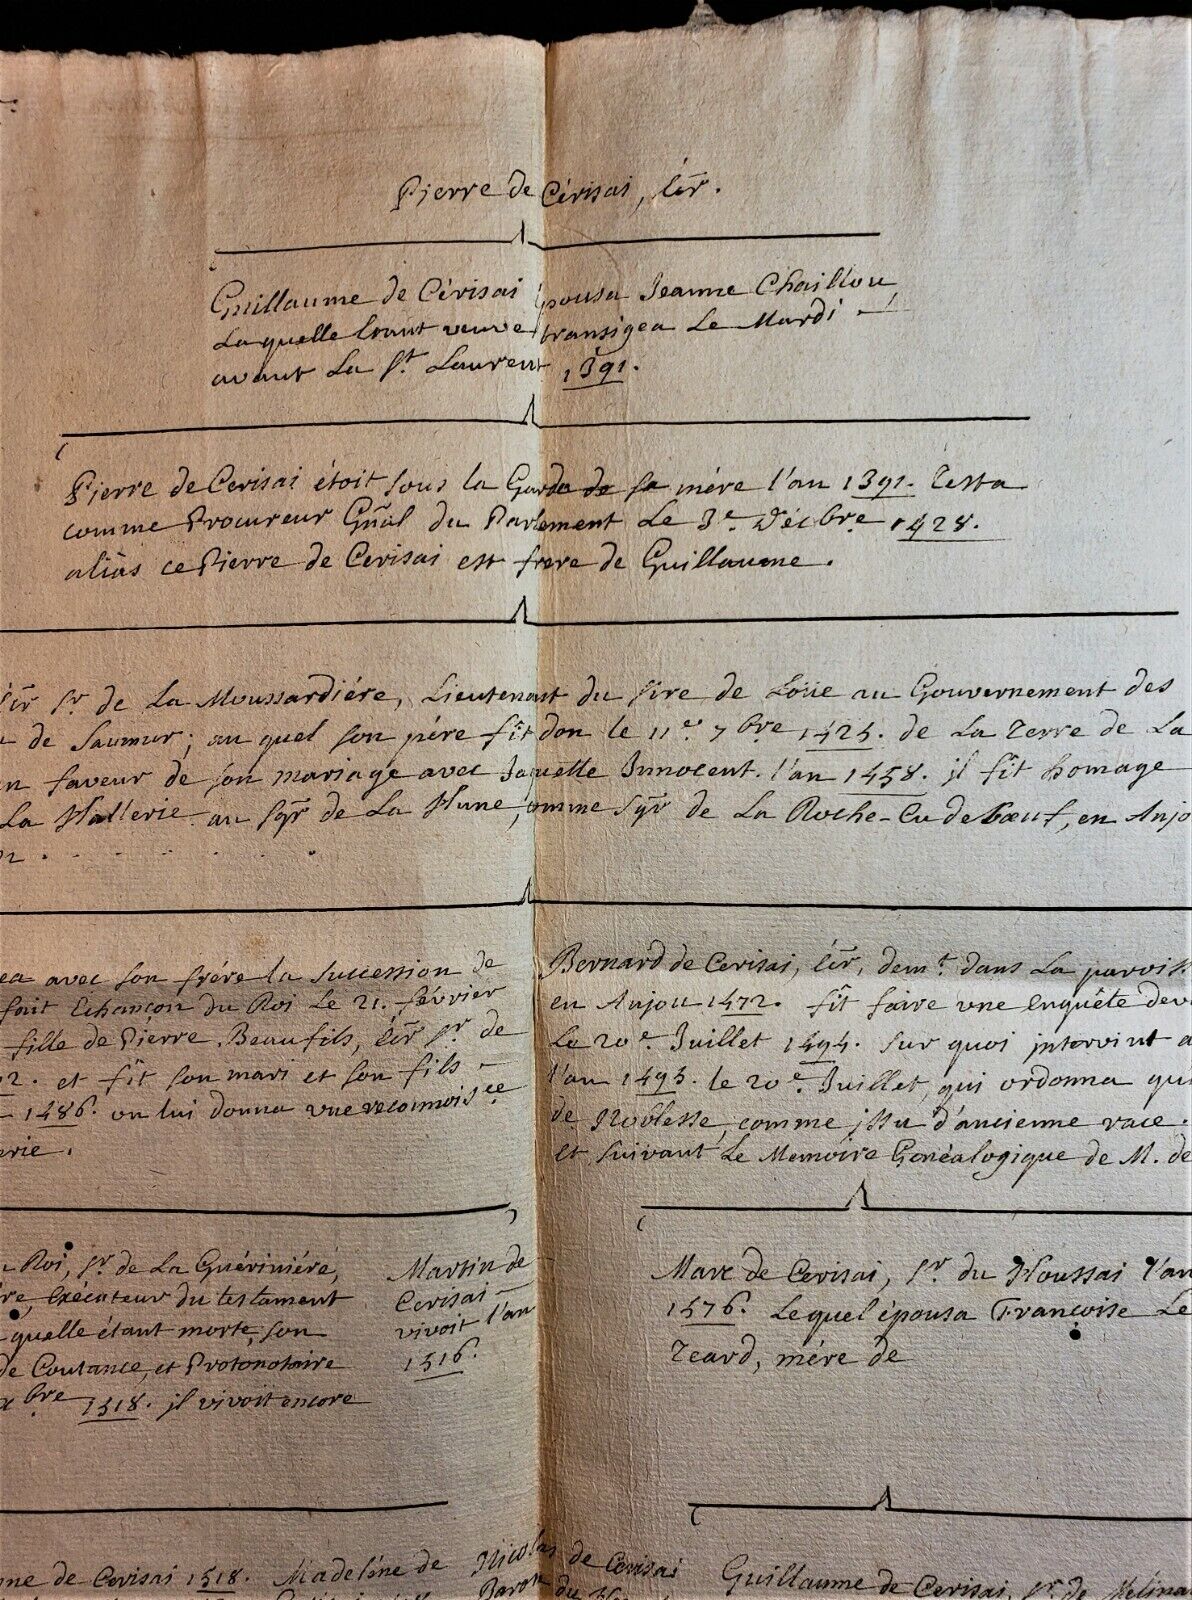 Pierre de Cérisai, Éc̃r.
Guillaume de Cérisai épousa Jeanne Chaillou
Laquelle étant veuve transigea Le Mardi
avant La St. Laurent 1391.
Pierre de Cerisai étoit sous la Garde de sa mére l'an 1391. Testa
comme Procureur Gñal du Parlement Le 3e. Décbre 1428.
aliàs ce Pierre de Cerisai est frere de Guillaume.
Éc̃r Sr. de La Moussardiére, Lieutenant du Sire de Loüe au Gouvernement des
de Saumur; au quel son pére fit don le 11e. 7bre 1425. de La Terre de La
en faveur de son mariage avec Jaquette Innocent. l'an 1458. il fit homage
La Hallerie au Sgr de La Hune, comme Sgr de La Roche-Cu de Bœuf, en Anjo
avec son frére la succession de
fait Echançon du Roi Le 21. février
fille de Pierre Beaufils, Éc̃r Sr. de
et fît son mari et son fils
1486. on lui donna une reconnoisce
erie.
Bernard de Cerisai, Éc̃r, demt. dans La parois.
en Anjou 1472. fît faire une enquête dev
Le 20e. Juillet 1494. sur quoi intervint a
l'an 1495. le 20e. Juillet, qui ordonna qu
de Noblesse, comme issu d'ancienne race.
et suivant Le Memoire Genéalogique de M. de
Roi, Sr. de La Guériniére,
re, Exécuteur du testament
quelle étant morte, son
de Coutance, et Protonotaire
xbre 1518. il vivoit encore
Martin de
Cerisai
vivoit l'an
1516.
Marc de Cerisai, Sr. du Houssai l'an
1576. Lequel épousa Françoise Le
Teard, mére de
ne de Cerisai 1518.
Madeléne de
Nicolas de Cerisai
Baron du
Guillaume de Cerisai, Sr. de Melina